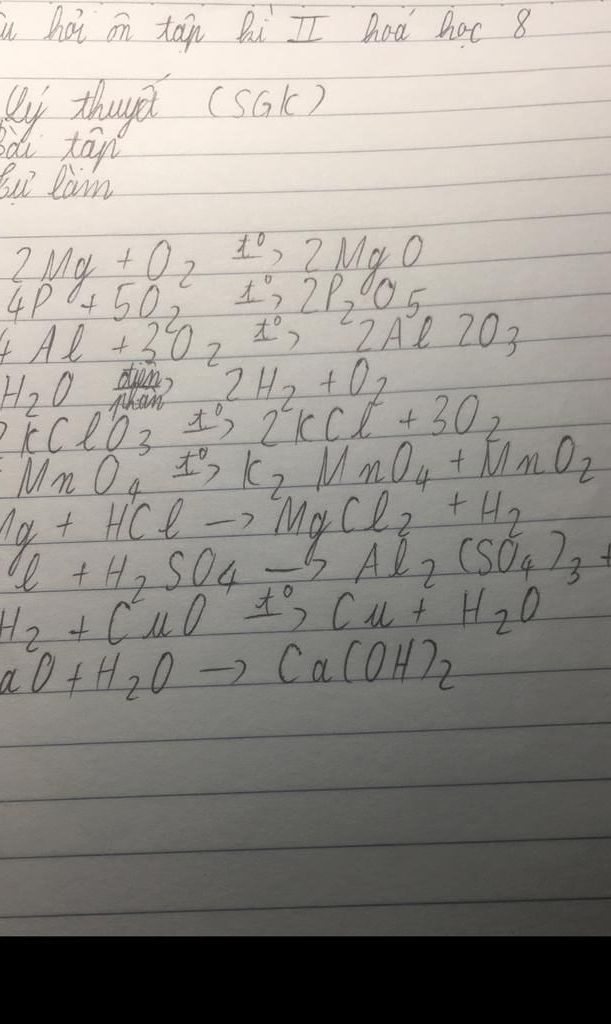 hỏi ôn tập kì II hoá học 8
Lý thuyết (SGK)
Bài tập
Tự làm
2Mg + O2 t°> 2MgO
4P + 5O2 t°> 2P2O5
4Al + 3O2 t°> 2Al2O3
H2O điện phân> 2H2 + O2
2KClO3 t°> 2KCl + 3O2
MnO4 t°> K2MnO4 + MnO2
Mg + HCl → MgCl2 + H2
l + H2SO4 → Al2(SO4)3 +
H2 + CuO t°> Cu + H2O
aO + H2O → Ca(OH)2